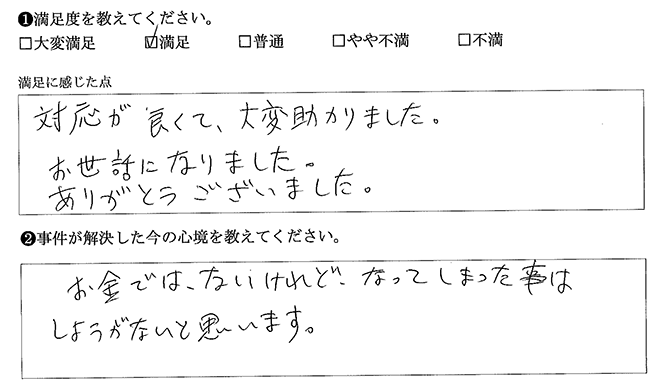 ❶満足度を教えてください。
□大変満足 ☑満足 □普通 □やや不満 □不満
満足に感じた点
対応が良くて、大変助かりました。
お世話になりました。
ありがとうございました。
❷事件が解決した今の心境を教えてください。
お金では、ないけれど、なってしまった事は
しようがないと思います。